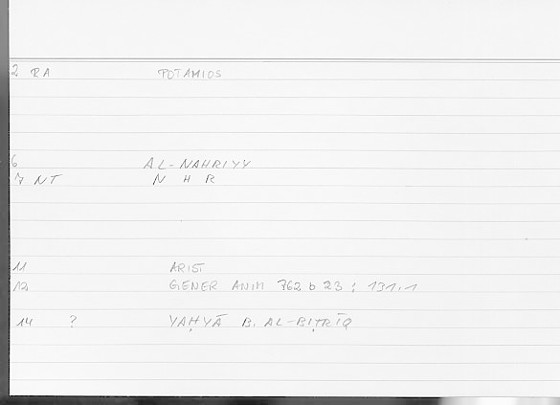 2 RA POTAMIOS
6 AL-NAHRIYY
7 NT N H R
11 ARIST
12 GENER ANIM 762 b 23 ; 131.1
14 ? YAḤYĀ B. AL-BIṬRĪQ